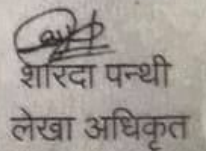 शारदा पन्थी
लेखा अधिकृत